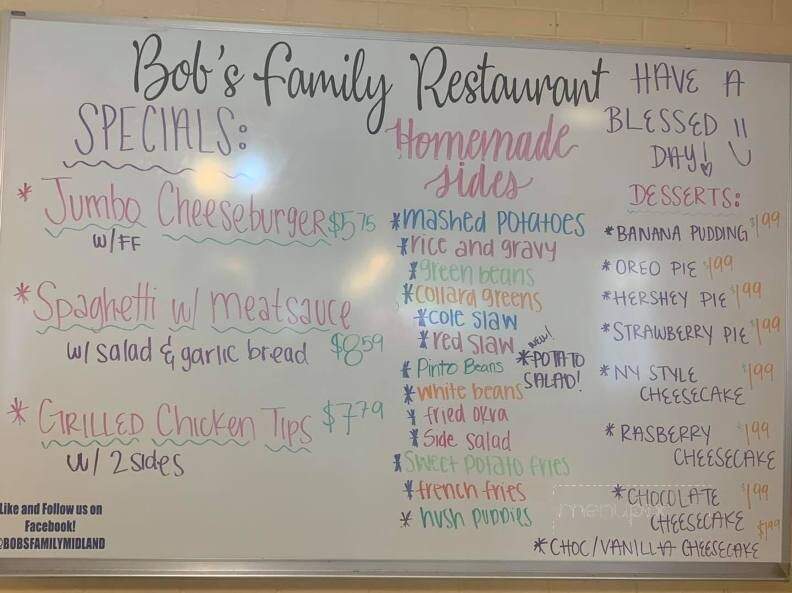 Bob's Family Restaurant
HAVE A
BLESSED
DAY!
SPECIALS:
* Jumbo Cheeseburger $5.75
w/FF
* Spaghetti w/ meatsauce
w/ salad & garlic bread $8.59
* GRILLED Chicken Tips $7.79
w/ 2 sides
Like and Follow us on
Facebook!
@BOBSFAMILYMIDLAND
Homemade
sides
*mashed potatoes
*rice and gravy
*green beans
*collard greens
*cole slaw
*red slaw
new!
*POTATO
SALAD!
* Pinto Beans
*white beans
* fried okra
* Side salad
*Sweet potato fries
*french fries
* hush puppies
DESSERTS:
*BANANA PUDDING $1.99
*OREO PIE $1.99
*HERSHEY PIE $1.99
*STRAWBERRY PIE $1.99
*NY STYLE $1.99
CHEESECAKE
*RASBERRY $1.99
CHEESECAKE
*CHOCOLATE $1.99
CHEESECAKE
$1.99
*CHOC/VANILLA CHEESECAKE
menupix